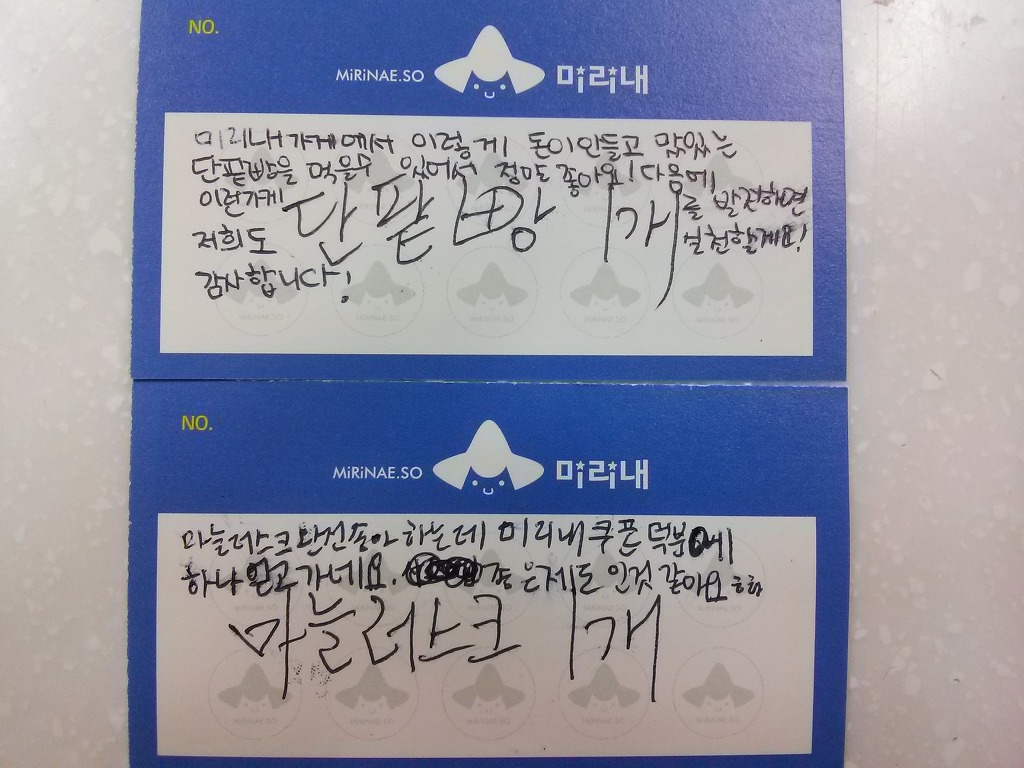 NO.
MiRiNAE.SO 미리내
미리내가게에서 이렇게 돈이안들고 맜있는
단팥빵을 먹을수 있어서 정마도 좋아요! 다음에
이런가게 를 발전하면
단팥빵 1개
저희도 실천할게요!
감사합니다!
NO.
MiRiNAE.SO 미리내
마늘러스크 완전좋아 하는데 미리내쿠폰 덕분에
하나 얻고가네요. 좋은제도 인것 같아요
마늘러스크 1개